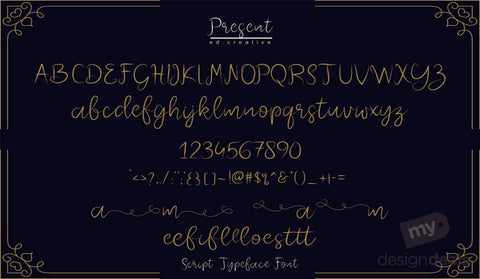 Present
ed.creative
ABCDEFGHIJKLMNOPQRSTUVWXYZ
abcdefghijklmnopqrstuvwxyz
1234567890
`<>?,./:;"'{}[]~!@#$%^&*()_+|-=
a m a m
eefiflllloesttt
Script Typeface Font
my
design